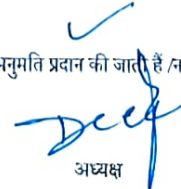 अनुमति प्रदान की जाती हैं /न
अध्यक्ष